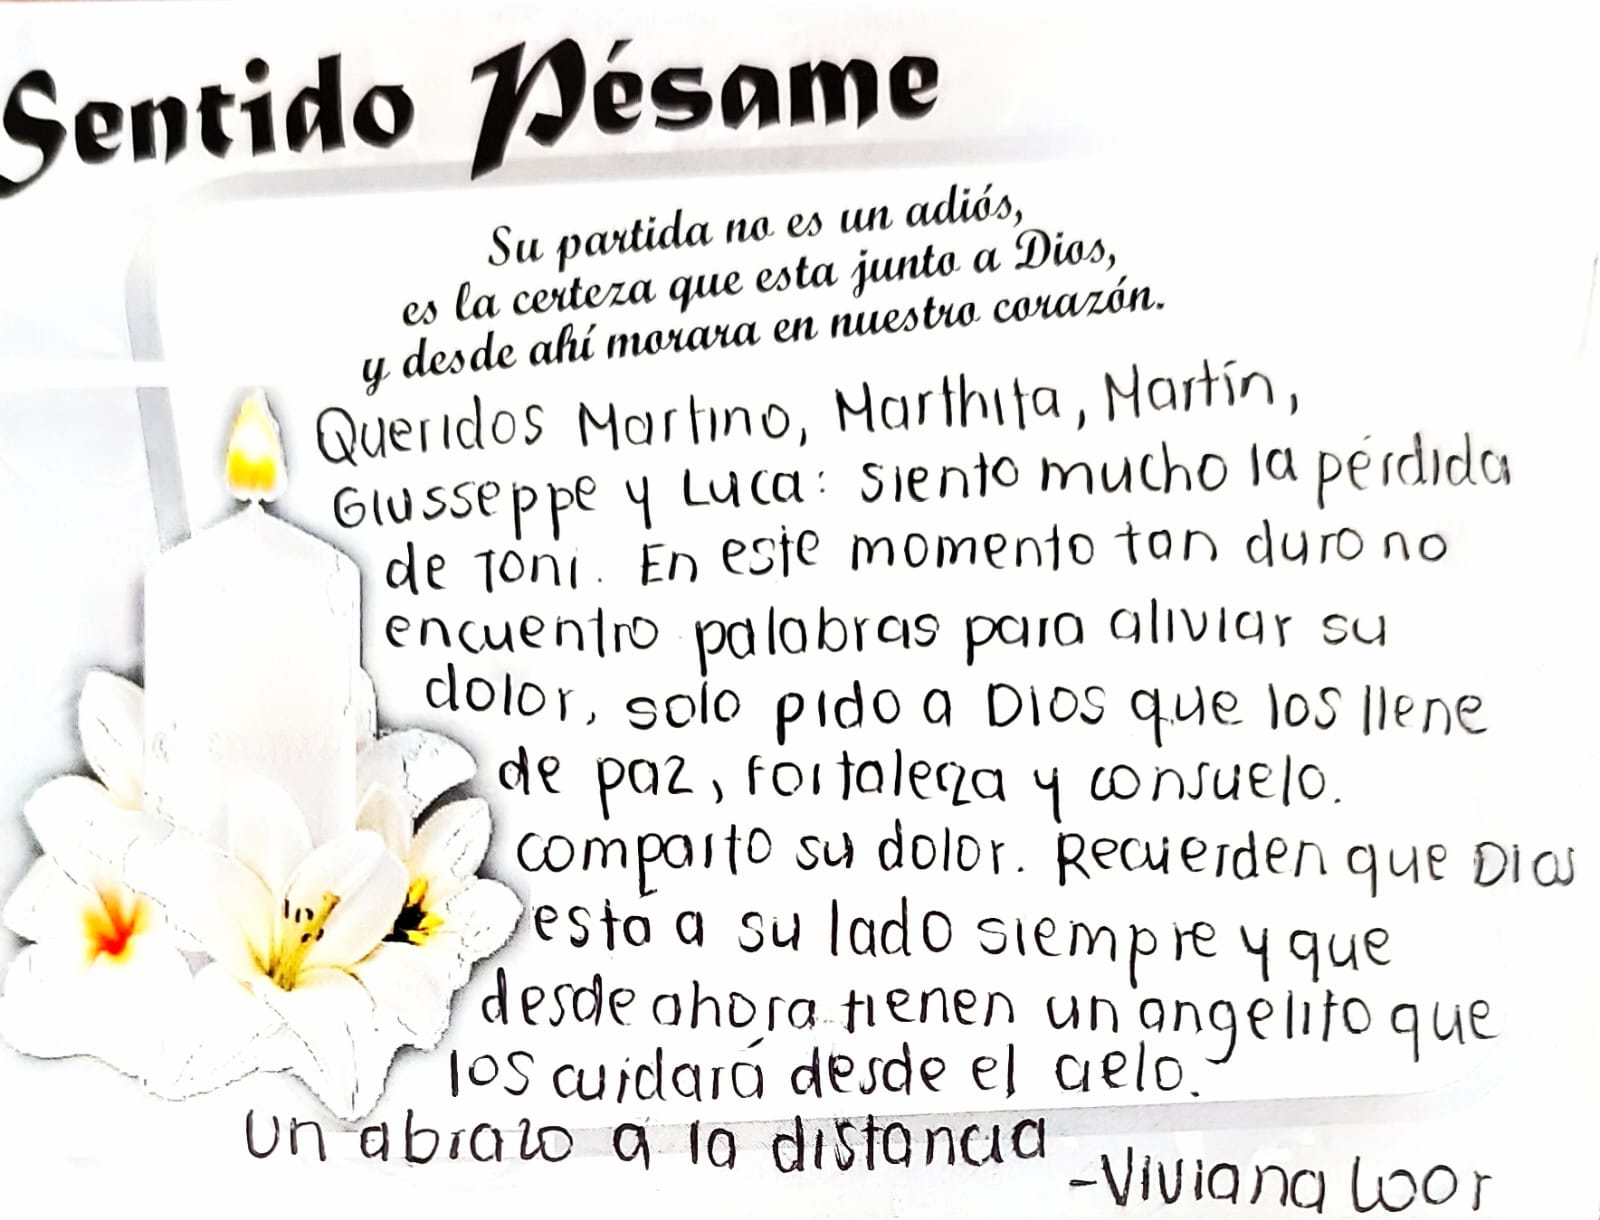 Sentido Pésame
Su partida no es un adiós,
es la certeza que esta junto a Dios,
y desde ahí morara en nuestro corazón.
Queridos Martino, Marthita, Martín,
Giusseppe y Luca: siento mucho la pérdida
de Toni. En este momento tan duro no
encuentro palabras para aliviar su
dolor, solo pido a Dios que los llene
de paz, fortaleza y consuelo.
comparto su dolor. Recuerden que Dios
está a su lado siempre y que
desde ahora tienen un angelito que
los cuidará desde el cielo.
un abrazo a la distancia
-Viviana Loor